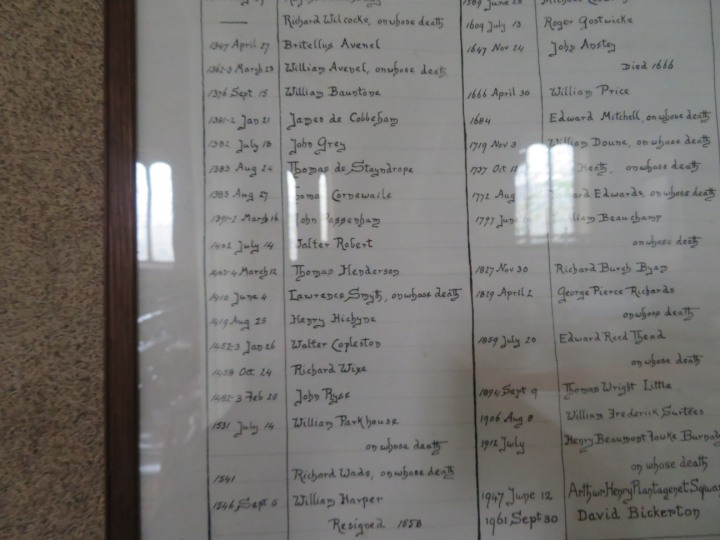 Richard Wilcocke, on whose death
1347 April 27 Britellus Avenel
1362-3 March 23 William Avenel, on whose death
1376 Sept 15 William Bauntone
1381-2 Jan 21 James de Cobbeham
1382 July 18 John Grey
1383 Aug 24 Thomas de Stayndrope
1383 Aug 27 Cornewaile
1391-2 March 16 John Passenham
1402 July 14 Walter Robert
1403-4 March 12 Thomas Henderson
1410 June 4 Lawrence Smyth, on whose death
1419 Aug 25 Henry Hichyne
1452-3 Jan 26 Walter Copleston
1458 Oct 24 Richard Wixe
1482-3 Feb 20 John Ryse
1531 July 14 William Parkhouse
on whose death
1541 Richard Wade, on whose death
1546 Sept 5 William Harper
Resigned 1558
1609 July 13 Roger Gostwicke
1647 Nov 24 John Anstey
Died 1666
1666 April 30 William Price
1684 Edward Mitchell, on whose death
1719 Nov 3 William Doune, on whose death
1737 Oct on whose death
1772 Aug Edwards on whose death
1797 June Beauchamp
on whose death
1827 Nov 30 Richard Burgh Byam
1829 April 2 George Pierce Richards
on whose death
1859 July 20 Edward Reed Thead
on whose death
1894 Sept 9 Thomas Wright Little
1906 Aug 8 William Frederick Surtees
1912 July Henry Beaumont Fowke
on whose death
1947 June 12 Arthur Henry Plantagenet
1961 Sept 30 David Bickerton